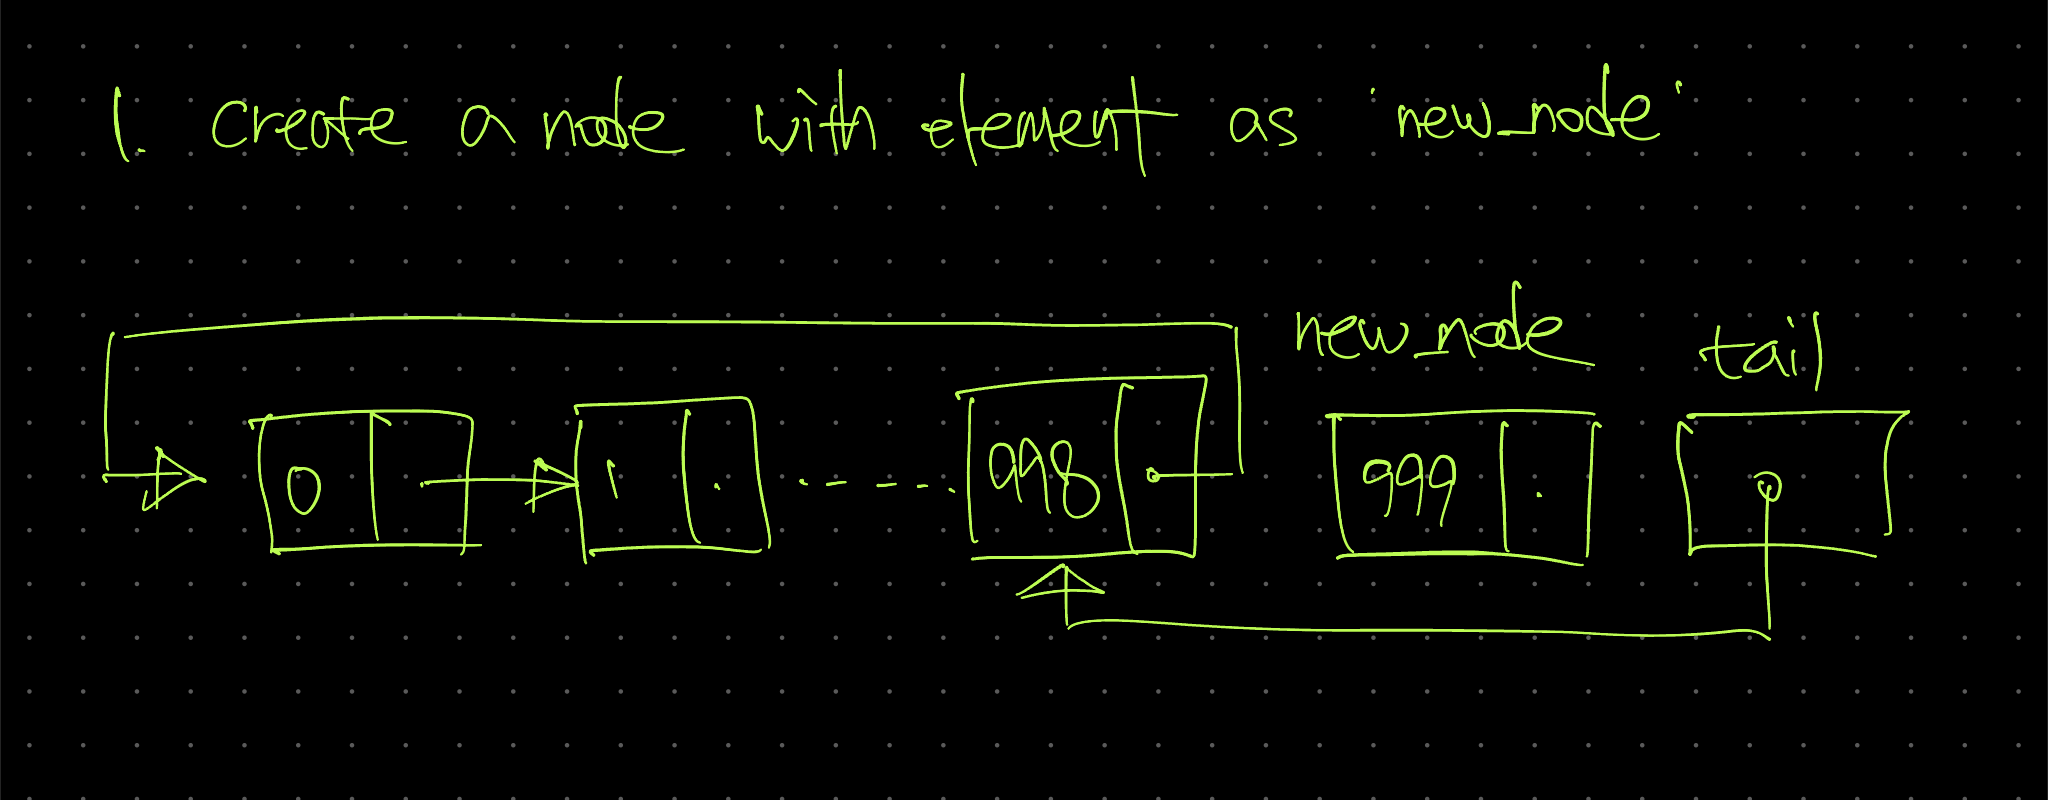 1. create a node with element as 'new_node'
new_node tail
0 1 998 999